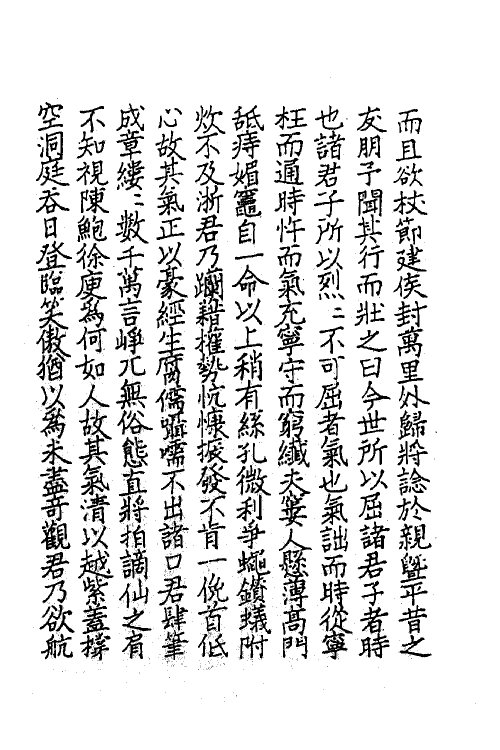 而且欲杖節建侯封萬里外歸將諗於親曁平昔之
友朋予聞其行而壯之曰今世所以屈諸君子者時
也諸君子所以烈〻不可屈者氣也氣詘而時從寧
枉而通時忤而氣充寧守而窮纎夫窶人懸薄高門
舐痔媚竈自一命以上稍有絲孔微利爭蠅鑽蟻附
炊不及浙君乃躪藉權勢忼慷振發不肯一俛首低
心故其氣正以豪經生腐儒囁嚅不出諸口君肆筆
成章縷〻數千萬言崢兀無俗態直將拍謫仙之肩
不知視陳鮑徐庾為何如人故其氣清以越紫蓋撑
空洞庭吞日登臨笑傲猶以為未盡竒觀君乃欲航